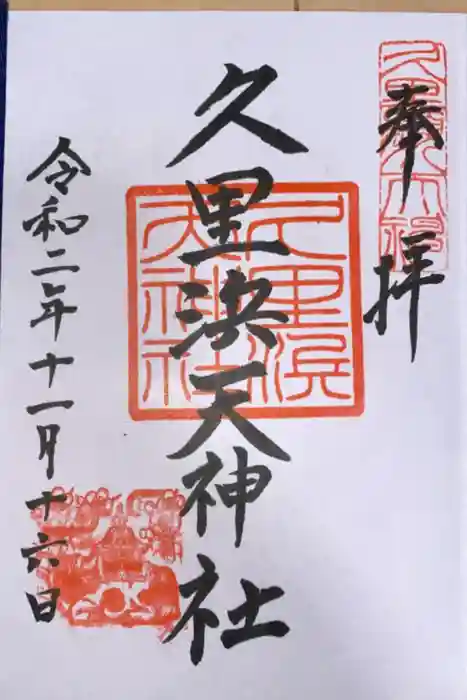 奉拝
久里浜天神社
令和二年十一月十六日
久里濱天神社